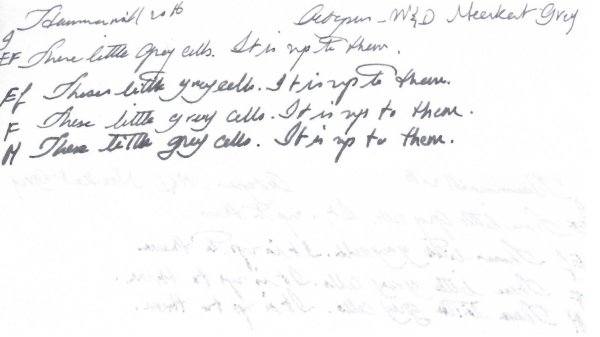 g Hammermill 20 lb Octopus - W&D Meerkat Grey
EF These little grey cells. It is up to them.
Ef These little grey cells. It is up to them.
F These little grey cells. It is up to them.
M These little grey cells. It is up to them.